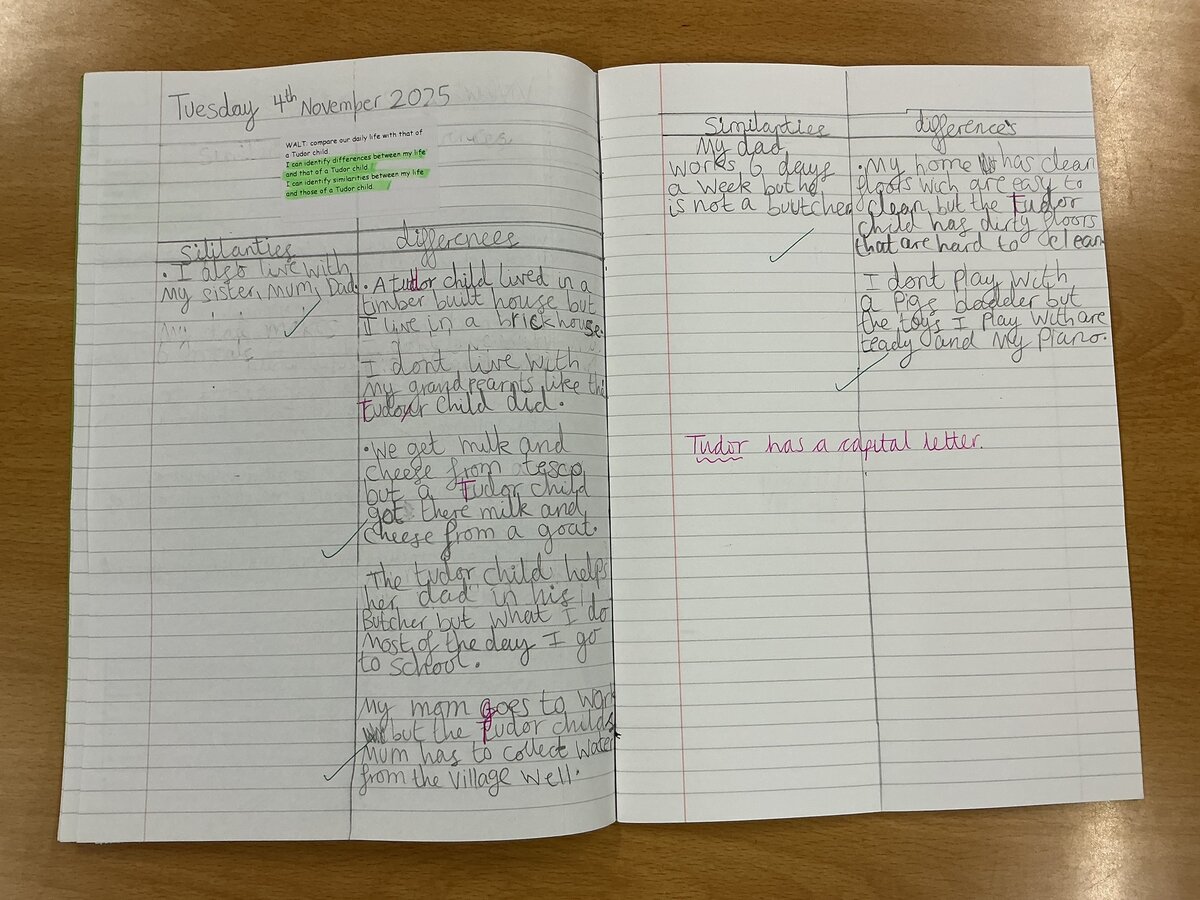 Tuesday 4th November 2025
WALT: compare our daily life with that of
a Tudor child.
I can identify differences between my life
and that of a Tudor child.
I can identify similarities between my life
and those of a Tudor child.
Sililarities
• I also live with
My sister, Mum, Dad.
differences
• A tudor child lived in a
timber built house but
I live in a brickhouse.
I dont live with
My grandpearnts like the
Tudor child did.
• We get milk and
cheese from tesco
but a Tudor child
got there milk and
cheese from a goat.
The tudor child helps
her dad in his
Butcher but what I do
Most of the day I go
to school.
My mam goes to work
but the Tudor childs
Mum has to collect water
from the village well.
Similarities
My dad
works 6 days
a week but he
is not a buutcher
differences
• My home has clean
floors wich are easy to
clean but the Tudor
child has dirty floors
that are hard to clean
I dont play with
a Pigs bladder but
the toys I play with are
teady and My Piano.
Tudor has a capital letter.